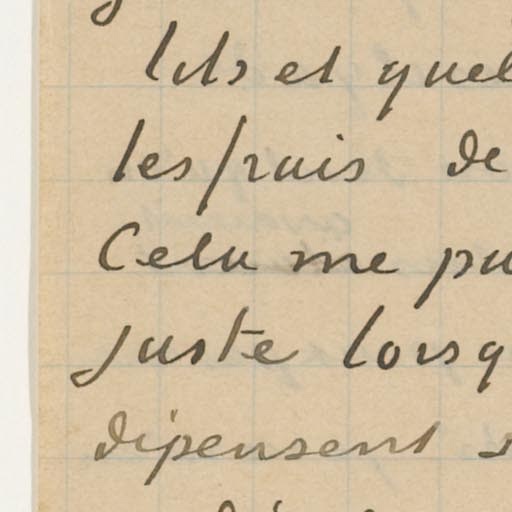 lits et quel
les frais de
Cela me pa
juste lorsq
dépensent s